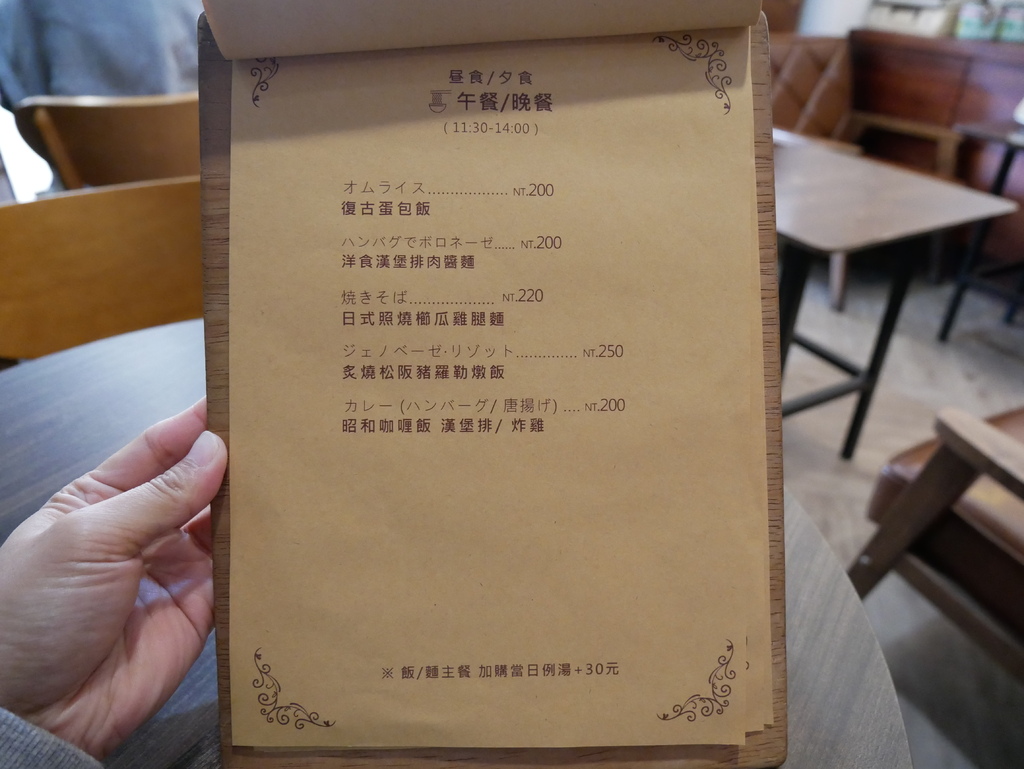 昼食/夕食
午餐/晚餐
(11:30-14:00)
オムライス.................. NT.200
復古蛋包飯
ハンバグでボロネーゼ...... NT.200
洋食漢堡排肉醬麵
焼きそば................... NT.220
日式照燒櫛瓜雞腿麵
ジェノベーゼ·リゾット.............. NT.250
炙燒松阪豬羅勒燉飯
カレー (ハンバーグ/ 唐揚げ) .... NT.200
昭和咖喱飯 漢堡排/ 炸雞
※ 飯/麵主餐 加購當日例湯+30元